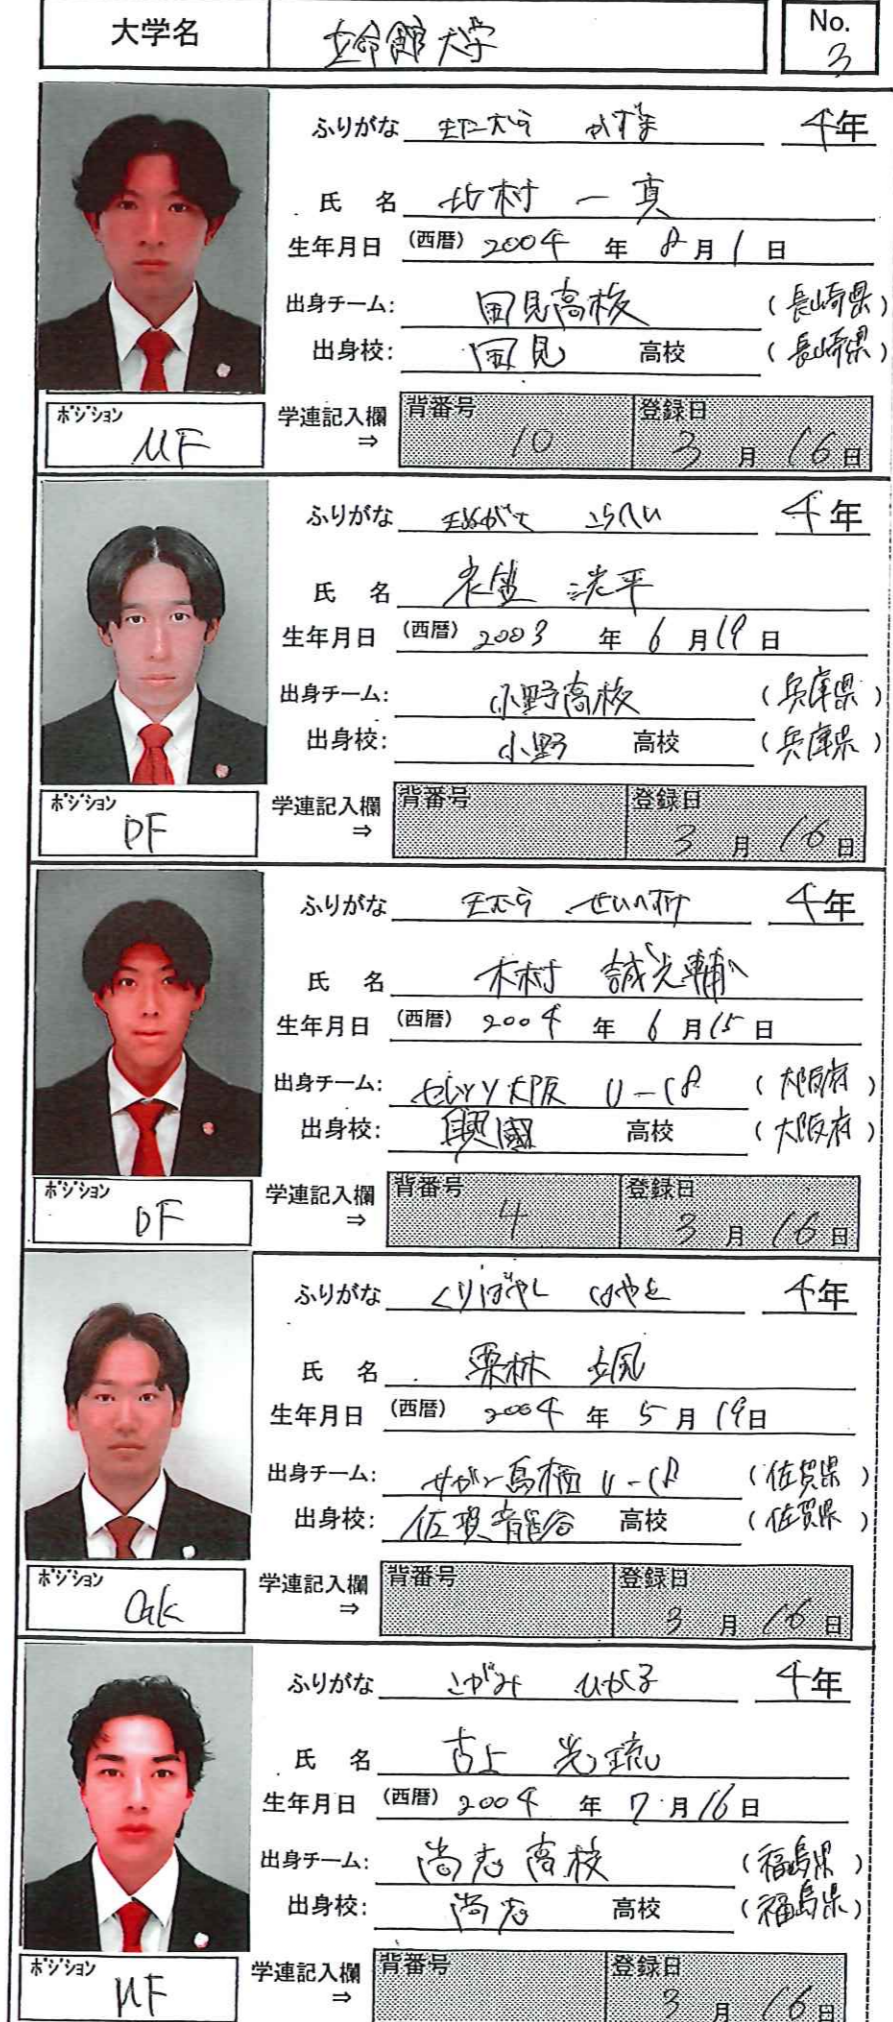 大学名 立命館大学 No. 3
ふりがな きたむら かずま 4年
氏 名 北村 一真
生年月日 (西暦) 2004 年 8月 1 日
出身チーム: 国見高校 (長崎県)
出身校: 国見 高校 (長崎県)
ポジション MF 学連記入欄 ⇒ 背番号 10 登録日 3 月 16 日
ふりがな きぬがさ こうへい 4年
氏 名 衣笠 滉平
生年月日 (西暦) 2003 年 6 月 19 日
出身チーム: 小野高校 (兵庫県)
出身校: 小野 高校 (兵庫県)
ポジション DF 学連記入欄 ⇒ 背番号 登録日 3 月 16 日
ふりがな きむら 4年
氏 名 木村 誠光輔
生年月日 (西暦) 2004 年 6 月 15 日
出身チーム: セレッソ大阪 U-18 (大阪府)
出身校: 興國 高校 (大阪府)
ポジション DF 学連記入欄 ⇒ 背番号 4 登録日 3 月 16 日
ふりがな くりばやし はやと 4年
氏 名 栗林 颯
生年月日 (西暦) 2004 年 5 月 19日
出身チーム: サガン鳥栖 U-18 (佐賀県)
出身校: 佐賀龍谷 高校 (佐賀県)
ポジション Gk 学連記入欄 ⇒ 背番号 登録日 3 月 16 日
ふりがな こがみ ひかる 4年
氏 名 古上 光琉
生年月日 (西暦) 2004 年 7 月 16 日
出身チーム: 尚志高校 (福島県)
出身校: 尚志 高校 (福島県)
ポジション MF 学連記入欄 ⇒ 背番号 登録日 3 月 16 日